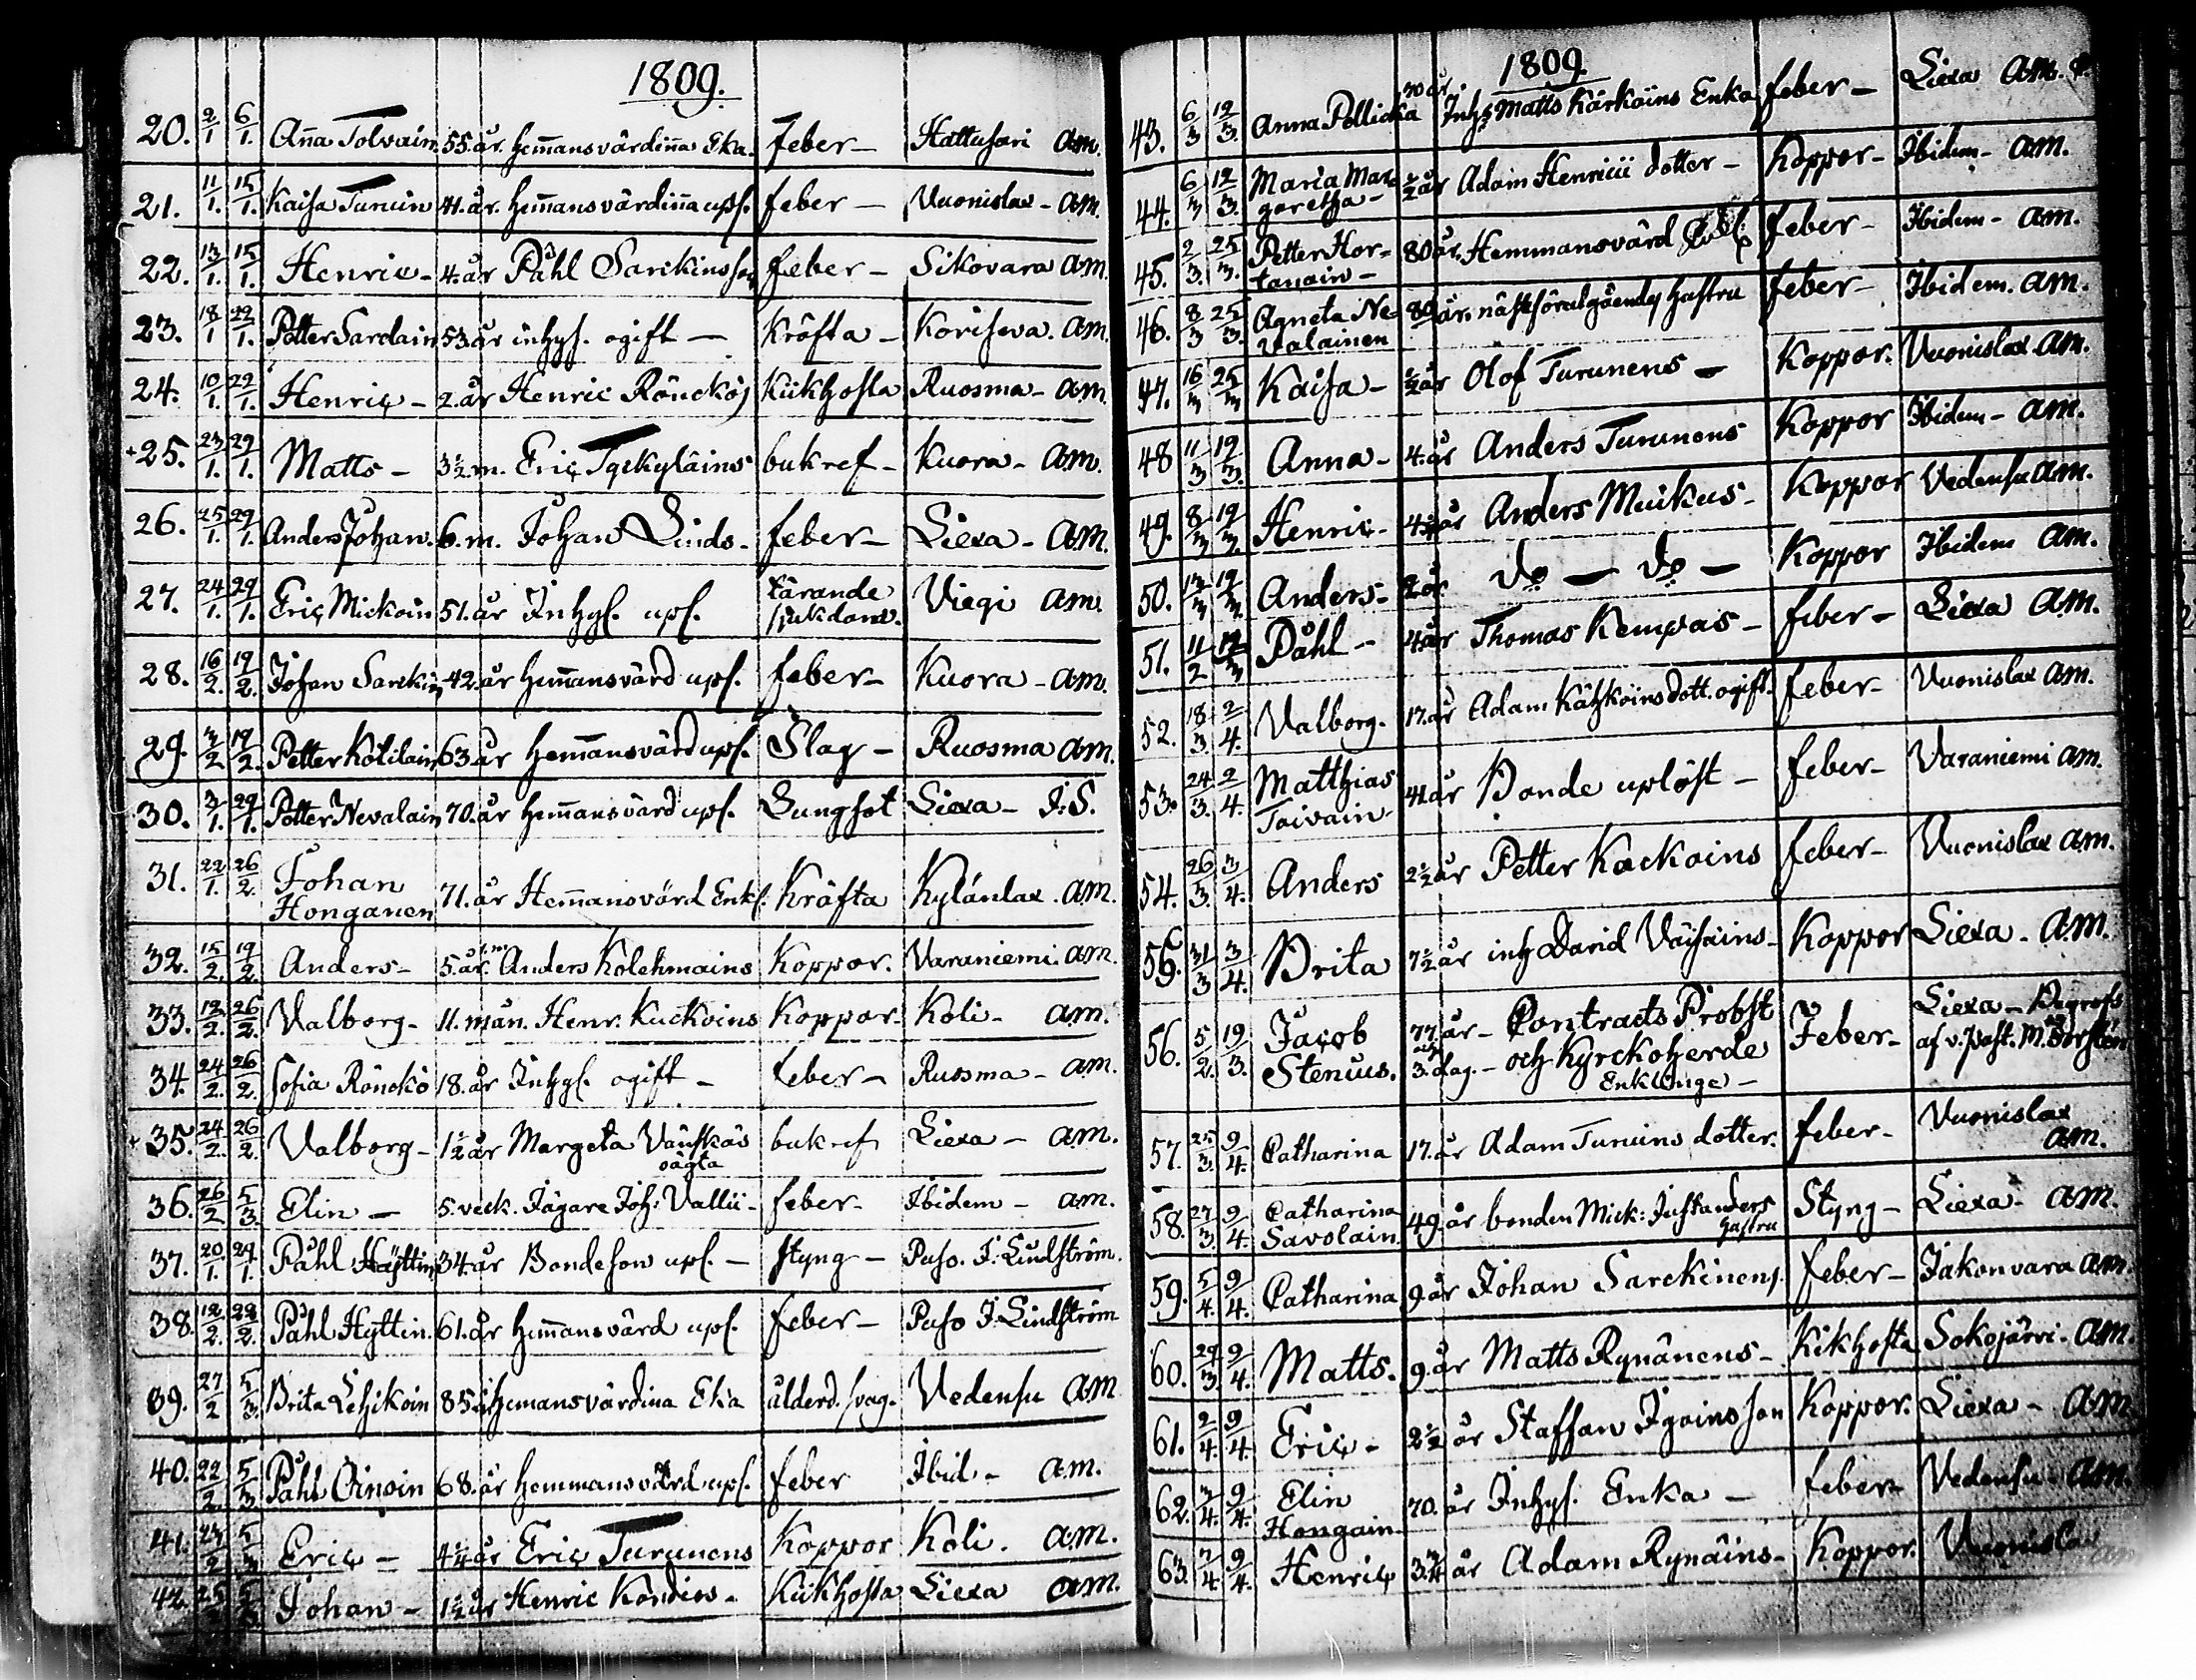 1809.
20. 2/1 6/1. Aña Tolvain. 55. år. hem̄ansvärdiña Eka. feber – Hattusari am.
21. 11/1. 15/1. Kaisa Turuin 41. år. hem̄ansvärdiña ups. feber – Vuonislax – am.
22. 13/1. 15/1. Henric – 4. år Påhl Sarikins son feber – Sikovara am.
23. 18/1 22/1. Petter Sardain 53. år inhys. ogift – Kräfta – Koriseva. am.
24. 10/1. 22/1. Henric – 2. år Henric Rönckös Kikhosta Ruosma – am.
25. 23/1. 29/1. Matts – 3½ m. Eric Tyckyläins bukref – Kuora – am.
26. 25/1. 29/1. Anders Johan. 6. m. Johan Linds – feber – Liexa – am.
27. 24/1. 29/1. Eric Mickoin 51. år Inhys. ups. tärande sjukdom. Viegi am.
28. 16/2. 19/2. Johan Sarckin 42. år hem̄ansvärd ups. feber – Kuora – am.
29. 3/2 19/2. Petter Kolilain 63. år hem̄ansvärd ups. Slag – Ruosma am.
30. 3/1. 29/1. Petter Nevalain 70. år hem̄ansvärd ups. Lungsot Liexa – J. S.
31. 22/1. 26/2. Johan Honganen 71. år Hem̄ansvärd Enkl. Kräfta Kylänlax. am.
32. 15/2. 19/2. Anders – 5. år. 1. m. Anders Kolehmains Koppor. Varaniemi. am.
33. 12/2. 26/2. Valborg – 11. mån. Henr. Kuckoins Koppor – Koli – am.
34. 24/2. 26/2. Sofia Rönckö 18. år Inhys. ogift – feber – Rusma – am.
35. 24/2. 26/2. Valborg – 1½ år Margeta Väiskäs oägta bukref Liexa – am.
36. 26/2 5/3. Elin – 5. veck. Jägare Joh: Vallii – feber – Ibidem – am.
37. 20/1. 29/1. Påhl Hyttin 34. år Bondeson ups. – styng – Puso. J. Lindström.
38. 12/2. 28/2. Påhl Hyttin. 61. år hem̄ansvärd ups. feber – Puso J. Lindström
39. 27/2 5/3. Brita Lehikoin 85. år hemansvärdina Eka ålderd. svag. Vedensu am
40. 22/2. 5/3 Påhl Oinoin 68. år hemmansvärd ups. feber Ibid – am.
41. 23/2 5/3 Eric – 4¼ år Eric Turunens Koppor Koli. am.
42. 25 5 Johan – 1½ år Henric Kondies – Kikhosta Liexa am.
1809.
43. 6/3 12/3. Anna Pollicka 70 år. Inhs Matts Kärkäins Enka feber – Liexa am.
44. 6/3 12/3. Maria Margaretha – ½ år Adam Henricii dotter – Koppor – Ibidem – am.
45. 2/3. 25/3. Petter Hortanain – 80 år. Hemmansvärd feber – Ibidem – am.
46. 8/3 25/3. Agneta Nevalainen 80 år. näst föregåendes hustru feber – Ibidem. am.
47. 16/3 25/3 Kaisa – ½ år Olof Turunens – Koppor. Vuonislax am.
48 11/3 19/3. Anna – 4. år Anders Turunens Koppor Ibidem – am.
49. 8/3 19/3. Henric – 4½ år Anders Muikus – Koppor Vedensu am.
50. 13/3 19/3. Anders – 2 år. do – do – Koppor Ibidem am.
51. 11/2 12/3 Påhl – 4 år Thomas Kempas – feber – Liexa am.
52. 18/3. 2/4. Valborg. 17. år Adam Kähköins dott. ogift. feber – Vuonislax am.
53. 24/3. 2/4. Matthias Toivain. 41 år Bonde uplöst – feber – Varaniemi am.
54. 26/3. 3/4. Anders 2½ år Petter Kackoins feber – Vuonislax am.
56. 31/3 3/4. Brita 7½ år inh David Väisäins – Koppor Liexa – am.
56. 5/2. 19/3. Jacob Stenius. 77. år och 3. dag. – Contracts Probst och Kyrckoherde Enklinge – Feber – Liexa – Begrofs af v. past. M. Borsten
57. 25/3. 9/4. Catharina 17. år Adam Turuins dotter. feber – Vuonislax am.
58. 27/3. 9/4. Catharina Savolain 49. år bonden Mick: Justanders hustru Styng – Liexa – am.
59. 5/4. 9/4. Catharina 9. år Johan Sarckinens. feber – Jakonvara am.
60. 29/3. 9/4. Matts. 9. år Matts Rynänens – Kikhosta Sokojärvi – am.
61. 2/4. 9/4 Eric – 2½ år Staffan Igoins son Koppor. Liexa – am
62. 3/4. 9/4. Elin Hongain 70. år Inhys. Enka – feber Vedensu – am.
63. 7/4. 9/4. Henric 3¾ år Adam Rynäins – Koppor. Vuonislax am